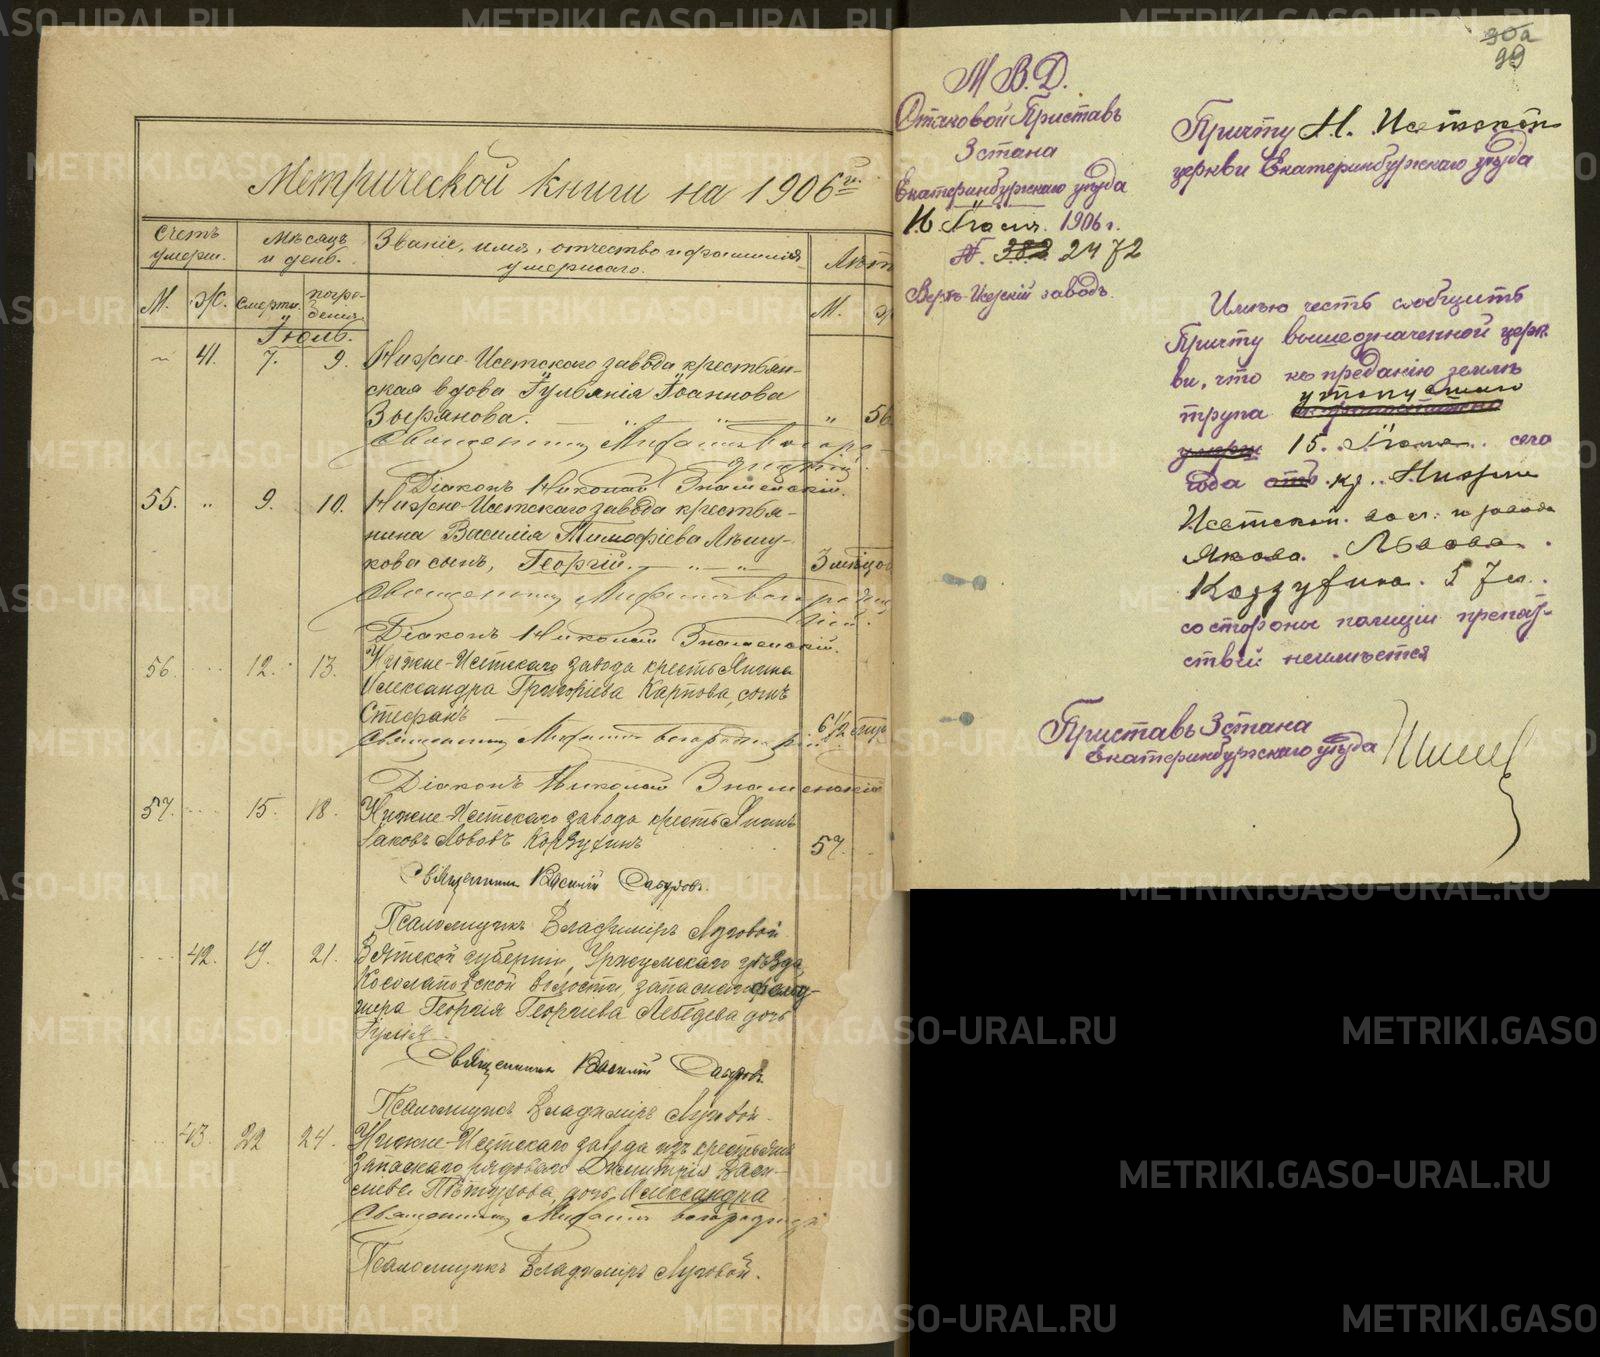 Метрической книги на 1906й
Счетъ умерш.
Мѣсяцъ и день.
Званіе, имя, отчество и фамилія умершаго.
Лѣт
М. Ж. Смерти. погребенія. М.
Іюль.
41. 7. 9. Нижне-Исетскаго завода крестьян-
ская вдова Іуліанія Іоаннова
Зырянова. " 56
Священникъ
Діаконъ Николай Знаменскій.
55. " 9. 10. Нижне-Исетскаго завода крестья-
нина Василія Тимофіева Лѣшу-
кова сынъ, Георгій. 3 мѣсяц
Священникъ
Діаконъ Николай Знаменскій.
56. 12. 13. Нижне-Исетскаго завода крестьянина
Александра Григоріева Карпова, сынъ
Стефанъ 6 1/2
Священникъ
Діаконъ Николай Знаменскій
57. 15. 18. Нижне-Исетскаго завода крестьянинъ
Іаковъ Львовъ Корзухинъ 57.
Священникъ Василій
Псаломщикъ Владиміръ Луговой
42. 19. 21. Вятской губерніи, Уржумскаго уѣзда,
Косолаповской волости, запаснаго фельд-
шера Георгія Георгіева Лебедева дочь
Іулія
Священникъ Василій
Псаломщикъ Владиміръ Луговой.
43. 22 24. Нижне-Исетскаго завода изъ крестьянъ
запаснаго рядоваго Димитрія Васи-
лиева Пѣтухова, дочь Александра
Священникъ
Псаломщикъ Владиміръ Луговой.
30а
99
М.В.Д.
Становой Приставъ
3 стана
Екатеринбургскаго уѣзда
16 Іюля 1906 г.
№. 382 2472
Верхъ-Исетскій заводъ.
Причту Н. Исетской
церкви Екатеринбургскаго уѣзда
Имѣю честь сообщить
Причту вышеозначенной церк-
ви, что къ преданію землѣ
утонувшаго
трупа
умерш 15. Іюля. сего
года отъ кр. Нижне
Исетской. вол. и завода
Якова. Львова.
Корзухина. 57 л.
со стороны полиціи препят-
ствій неимѣется
Приставъ 3 стана
Екатеринбургскаго уѣзда
METRIKI.GASO-URAL.RU